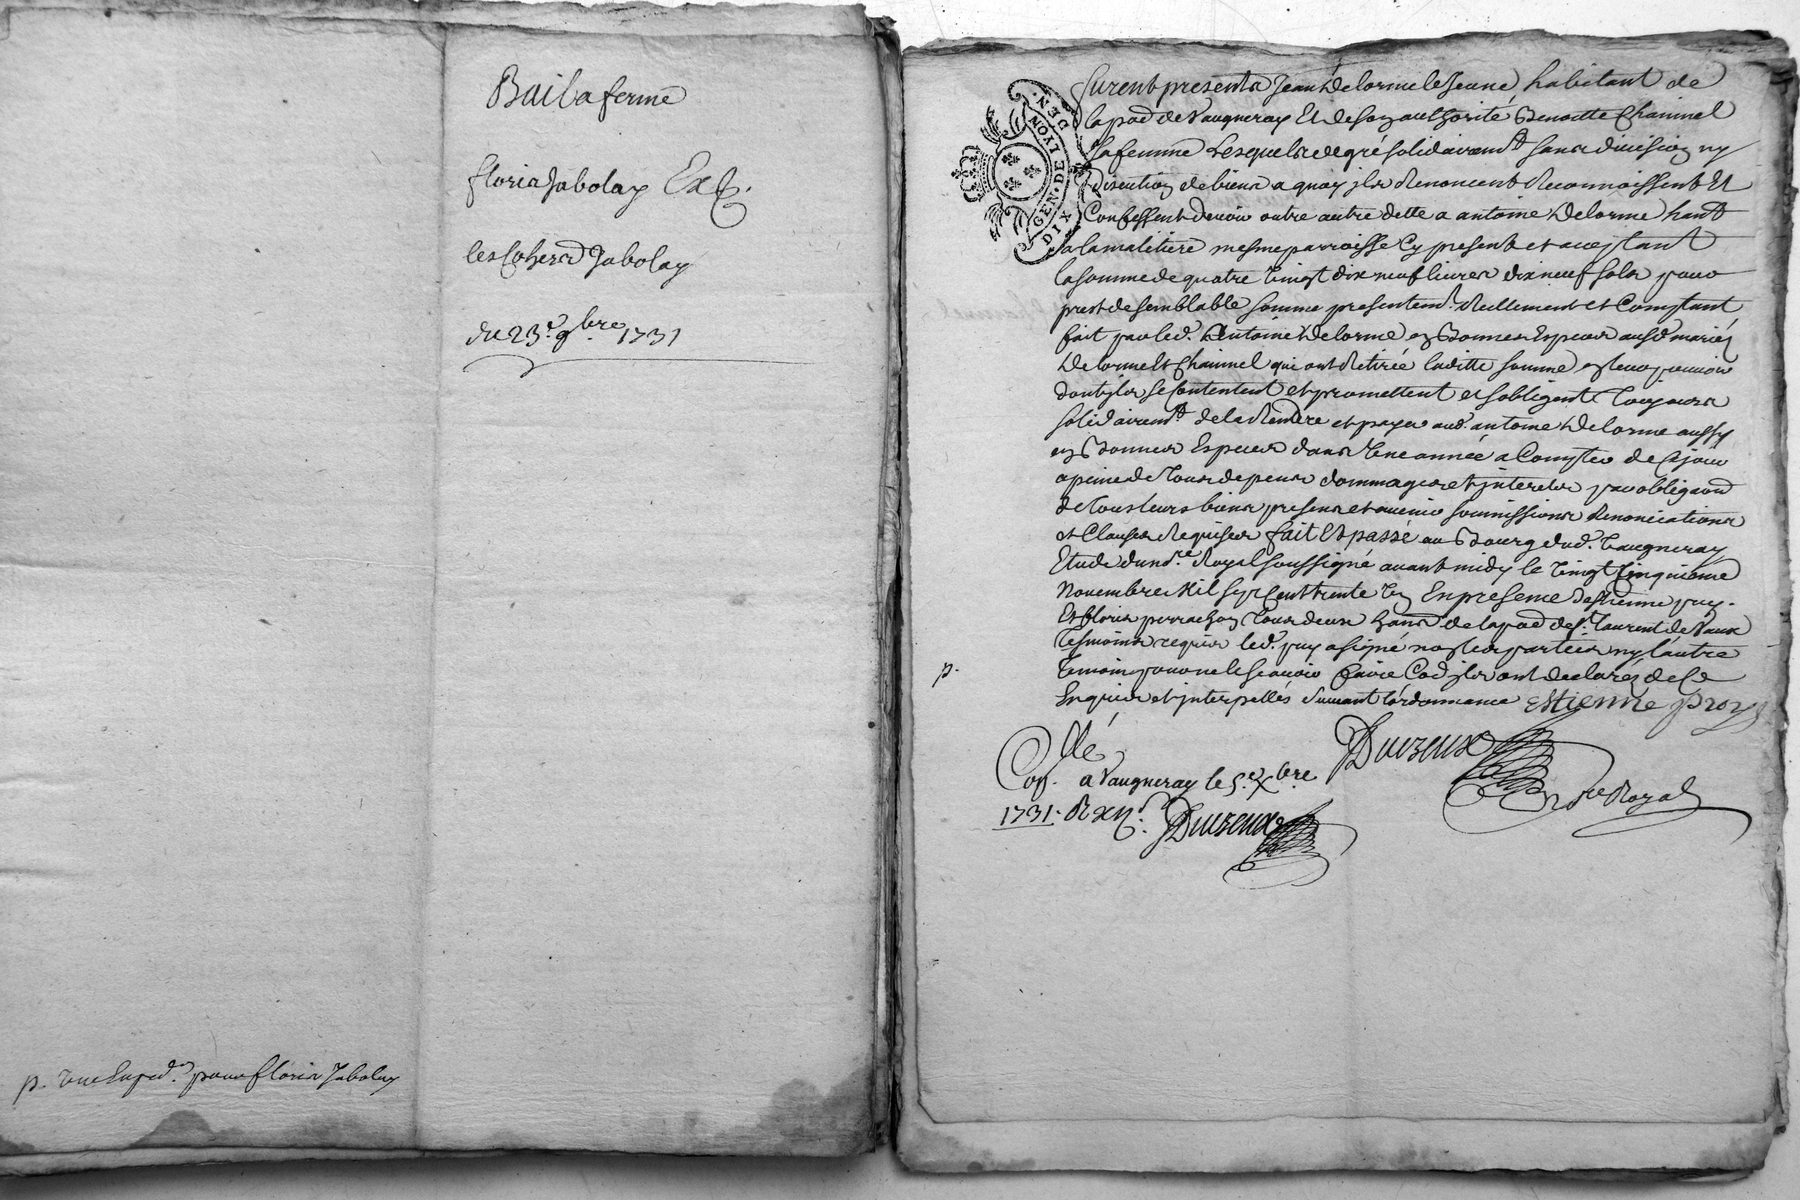 Bail a ferme
floris Jabolay Et
les Cohers Jabolay
du 23.e 9bre 1731
p. une Exped. pour floris Jabolay
GEN. DE LYON
DIX DEN.
furent presents Jean Delorme le Jeune habitant de
la par. de Vaugneray Et de son authorité Benoitte Chainel
sa femme Lesquels de gré solidairemt sans division ny
discution de biens a quoy ils Renoncent Reconnoissent Et
Confessent devoir outre autre dette a antoine Delorme hant
a la malitiere mesme parroisse Cy present et aceptant
la somme de quatre vingt dix neuf livres dix neuf sols pour
prest de semblable somme presentemt Réellement et Comptant
fait par led. Antoine Delorme en Bonnes Especes ausd. mariez
Delorme et Chainel qui ont Retirée laditte somme en leur pouvoir
dont ils se Contentent et promettent et s'obligent Toujours
solidairemt de la Rendre et payer aud. antoine Delorme aussy
en Bonnes Especes dans Une année a Compter de Ce jour
a peine de Tous depens dommages et jnterets par obligaon
de Tous leurs biens presens et avenir soumissions Renonciations
et Clauses Requises fait Et passé au Bourg dud. Vaugneray
Etude du nre Royal soussigné avant midy le Vingt Cinquieme
Novembre Mil Sept Cent trente Un En presence d'Estienne puy
Et floris perrachon Tous deux hans de la par. de St. Laurent de Vaux
Tesmoins requis led. puy a signé non les parties ny l'autre
p.
Temoin pour ne le scavoir faire Co͞e ils ont declarés de Ce
Enquis et jnterpellés suivant l'ordonnance Estienne puy
Duizeux
nre Royal
Collé
Con. a Vaugneray le 5.e Xbre
1731. R xij s.
Duizeux